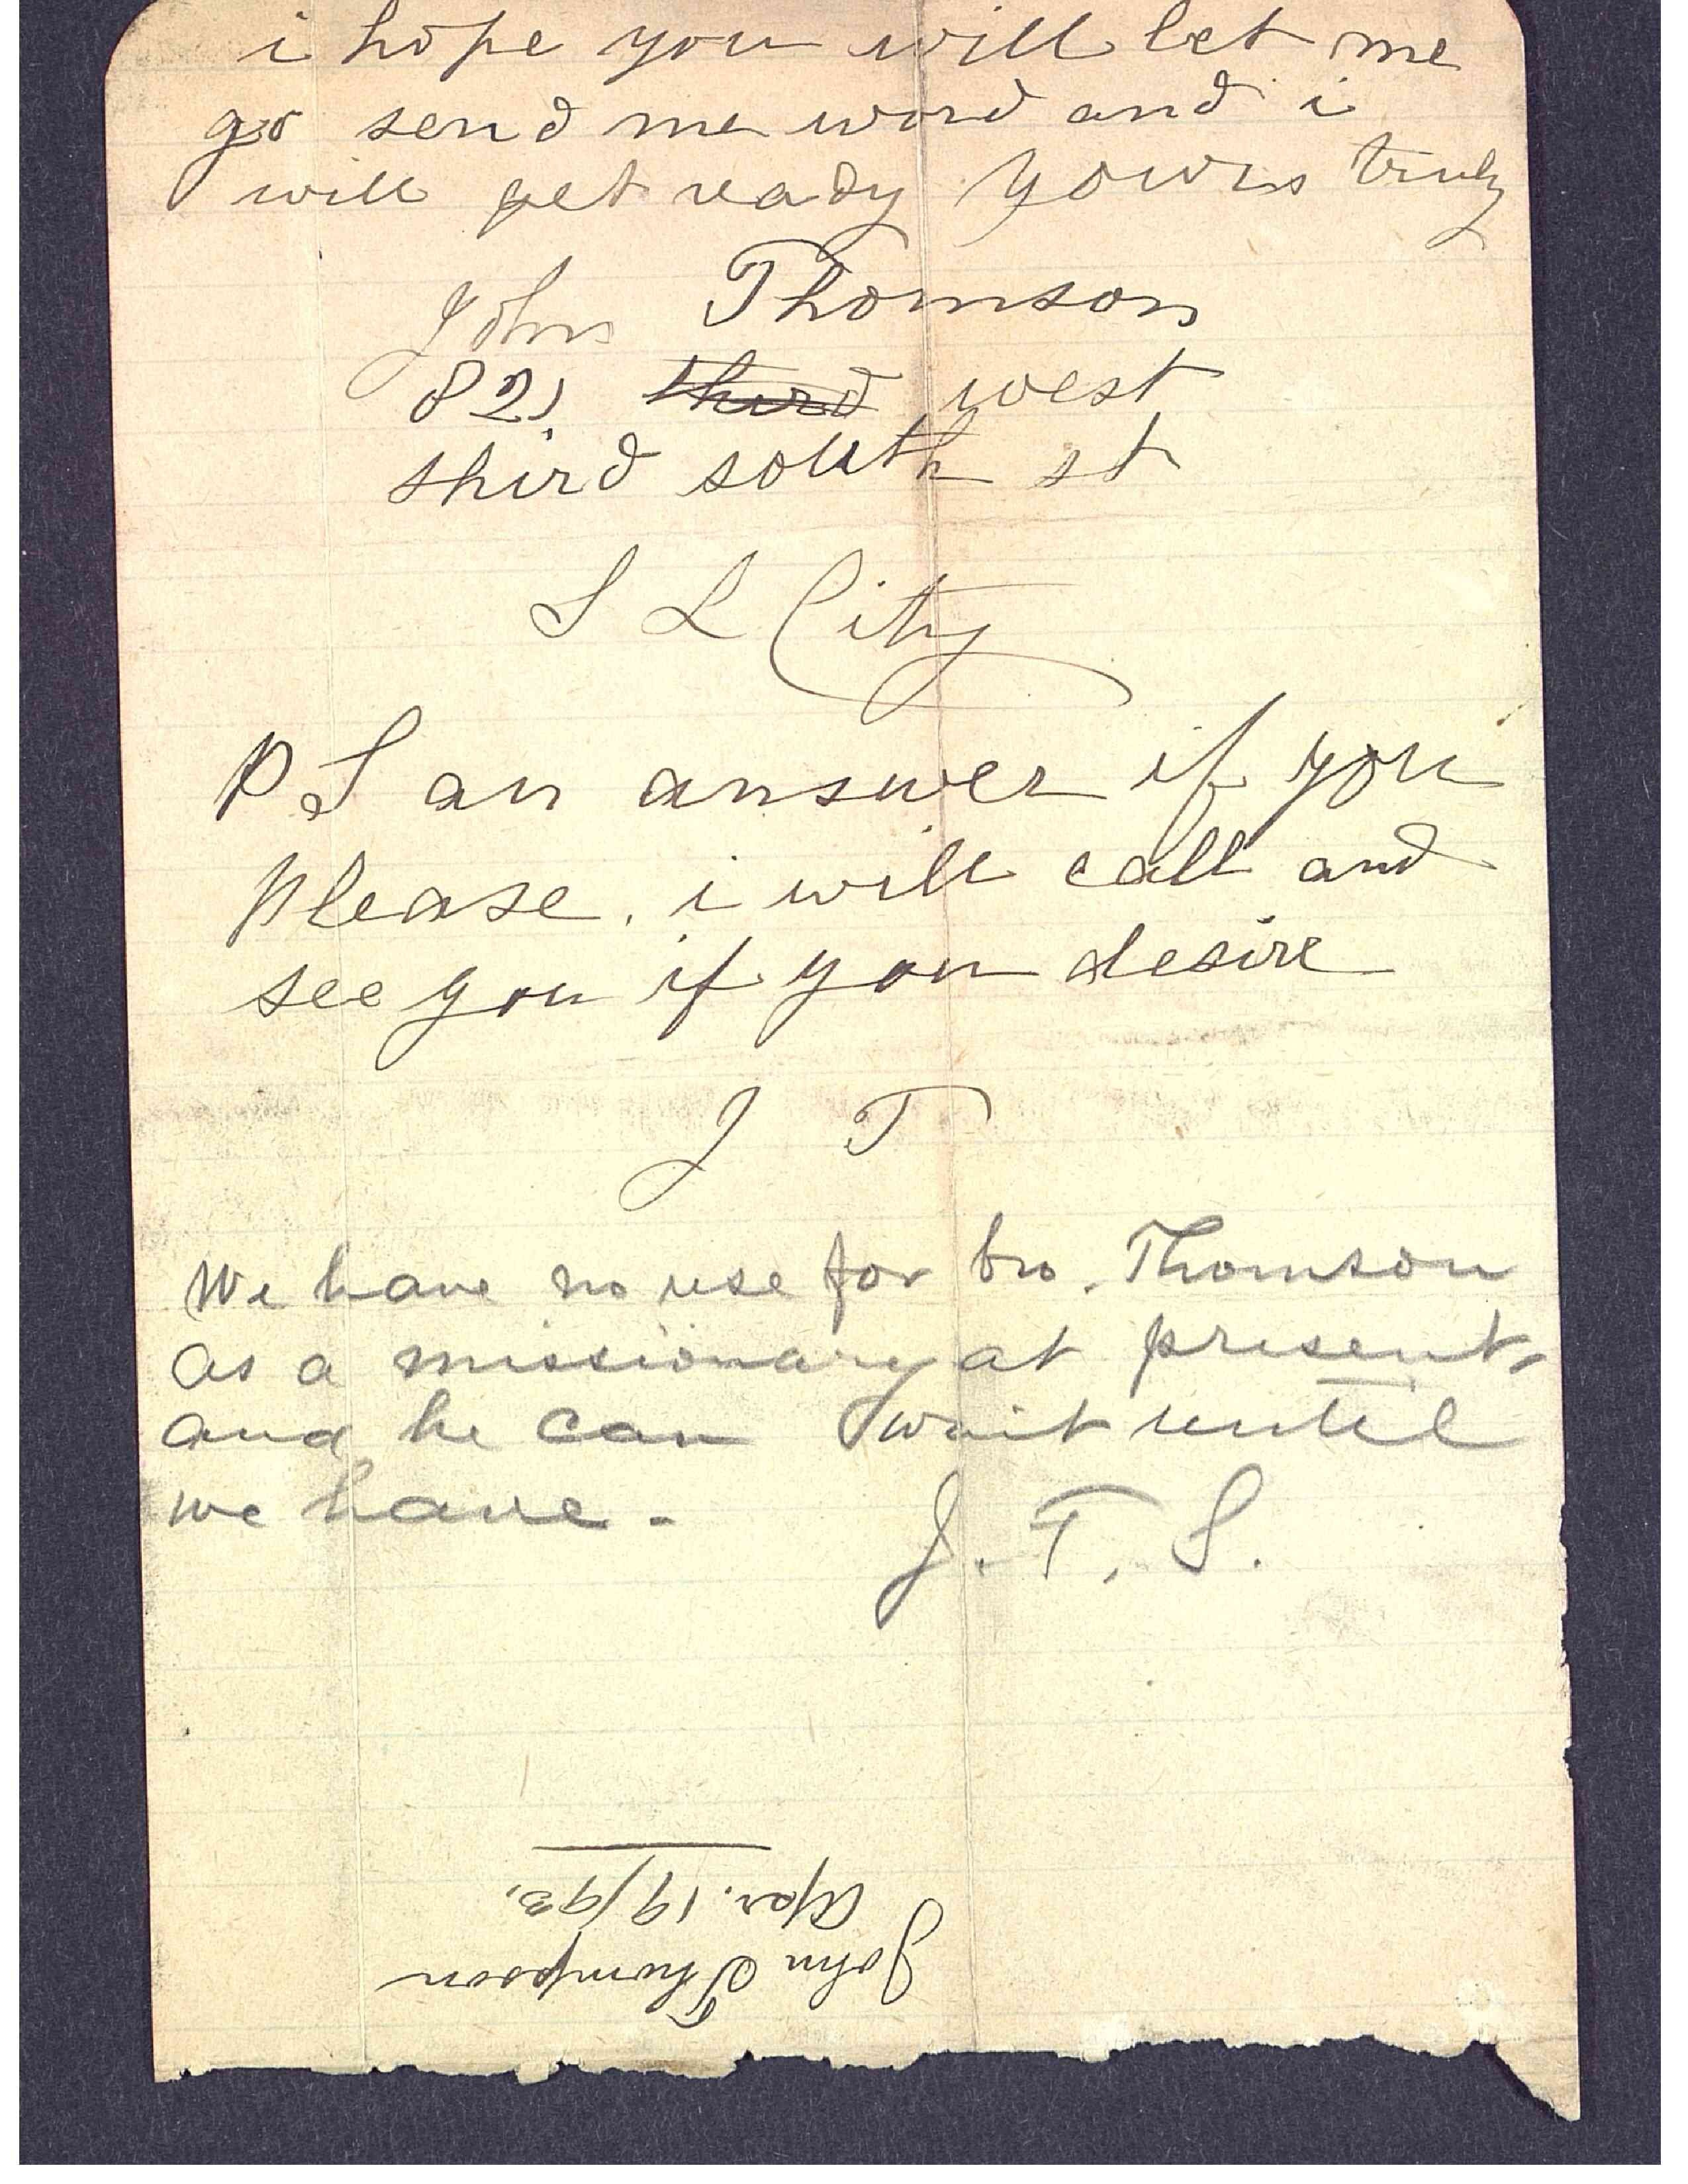 i hope you will let me
go send me word and i
will get ready yours truly
John Thomson
821 third west
third south st
S L City
P S an answer if you
please. i will call and
see you if you desire
J T
We have no use for bro. Thomson
as a missionary at present,
and he can wait until
we have.
J. T. S.
John Thompson
Apr. 19/93.